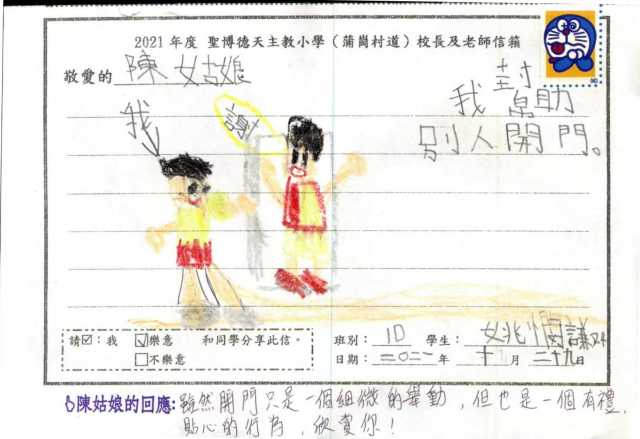 2021 年度 聖博德天主教小學(蒲崗村道)校長及老師信箱
敬愛的 陳姑娘
我封
我幫助
別人開門。
我
謝
請☑:我 ☑樂意 和同學分享此信。
□不樂意
班別: 1D 學生: 姚
日期: 二〇二一 年 十 月 二十九日
陳姑娘的回應: 雖然開門只是一個細微的舉動,但也是一個有禮、
貼心的行為,欣賞你!